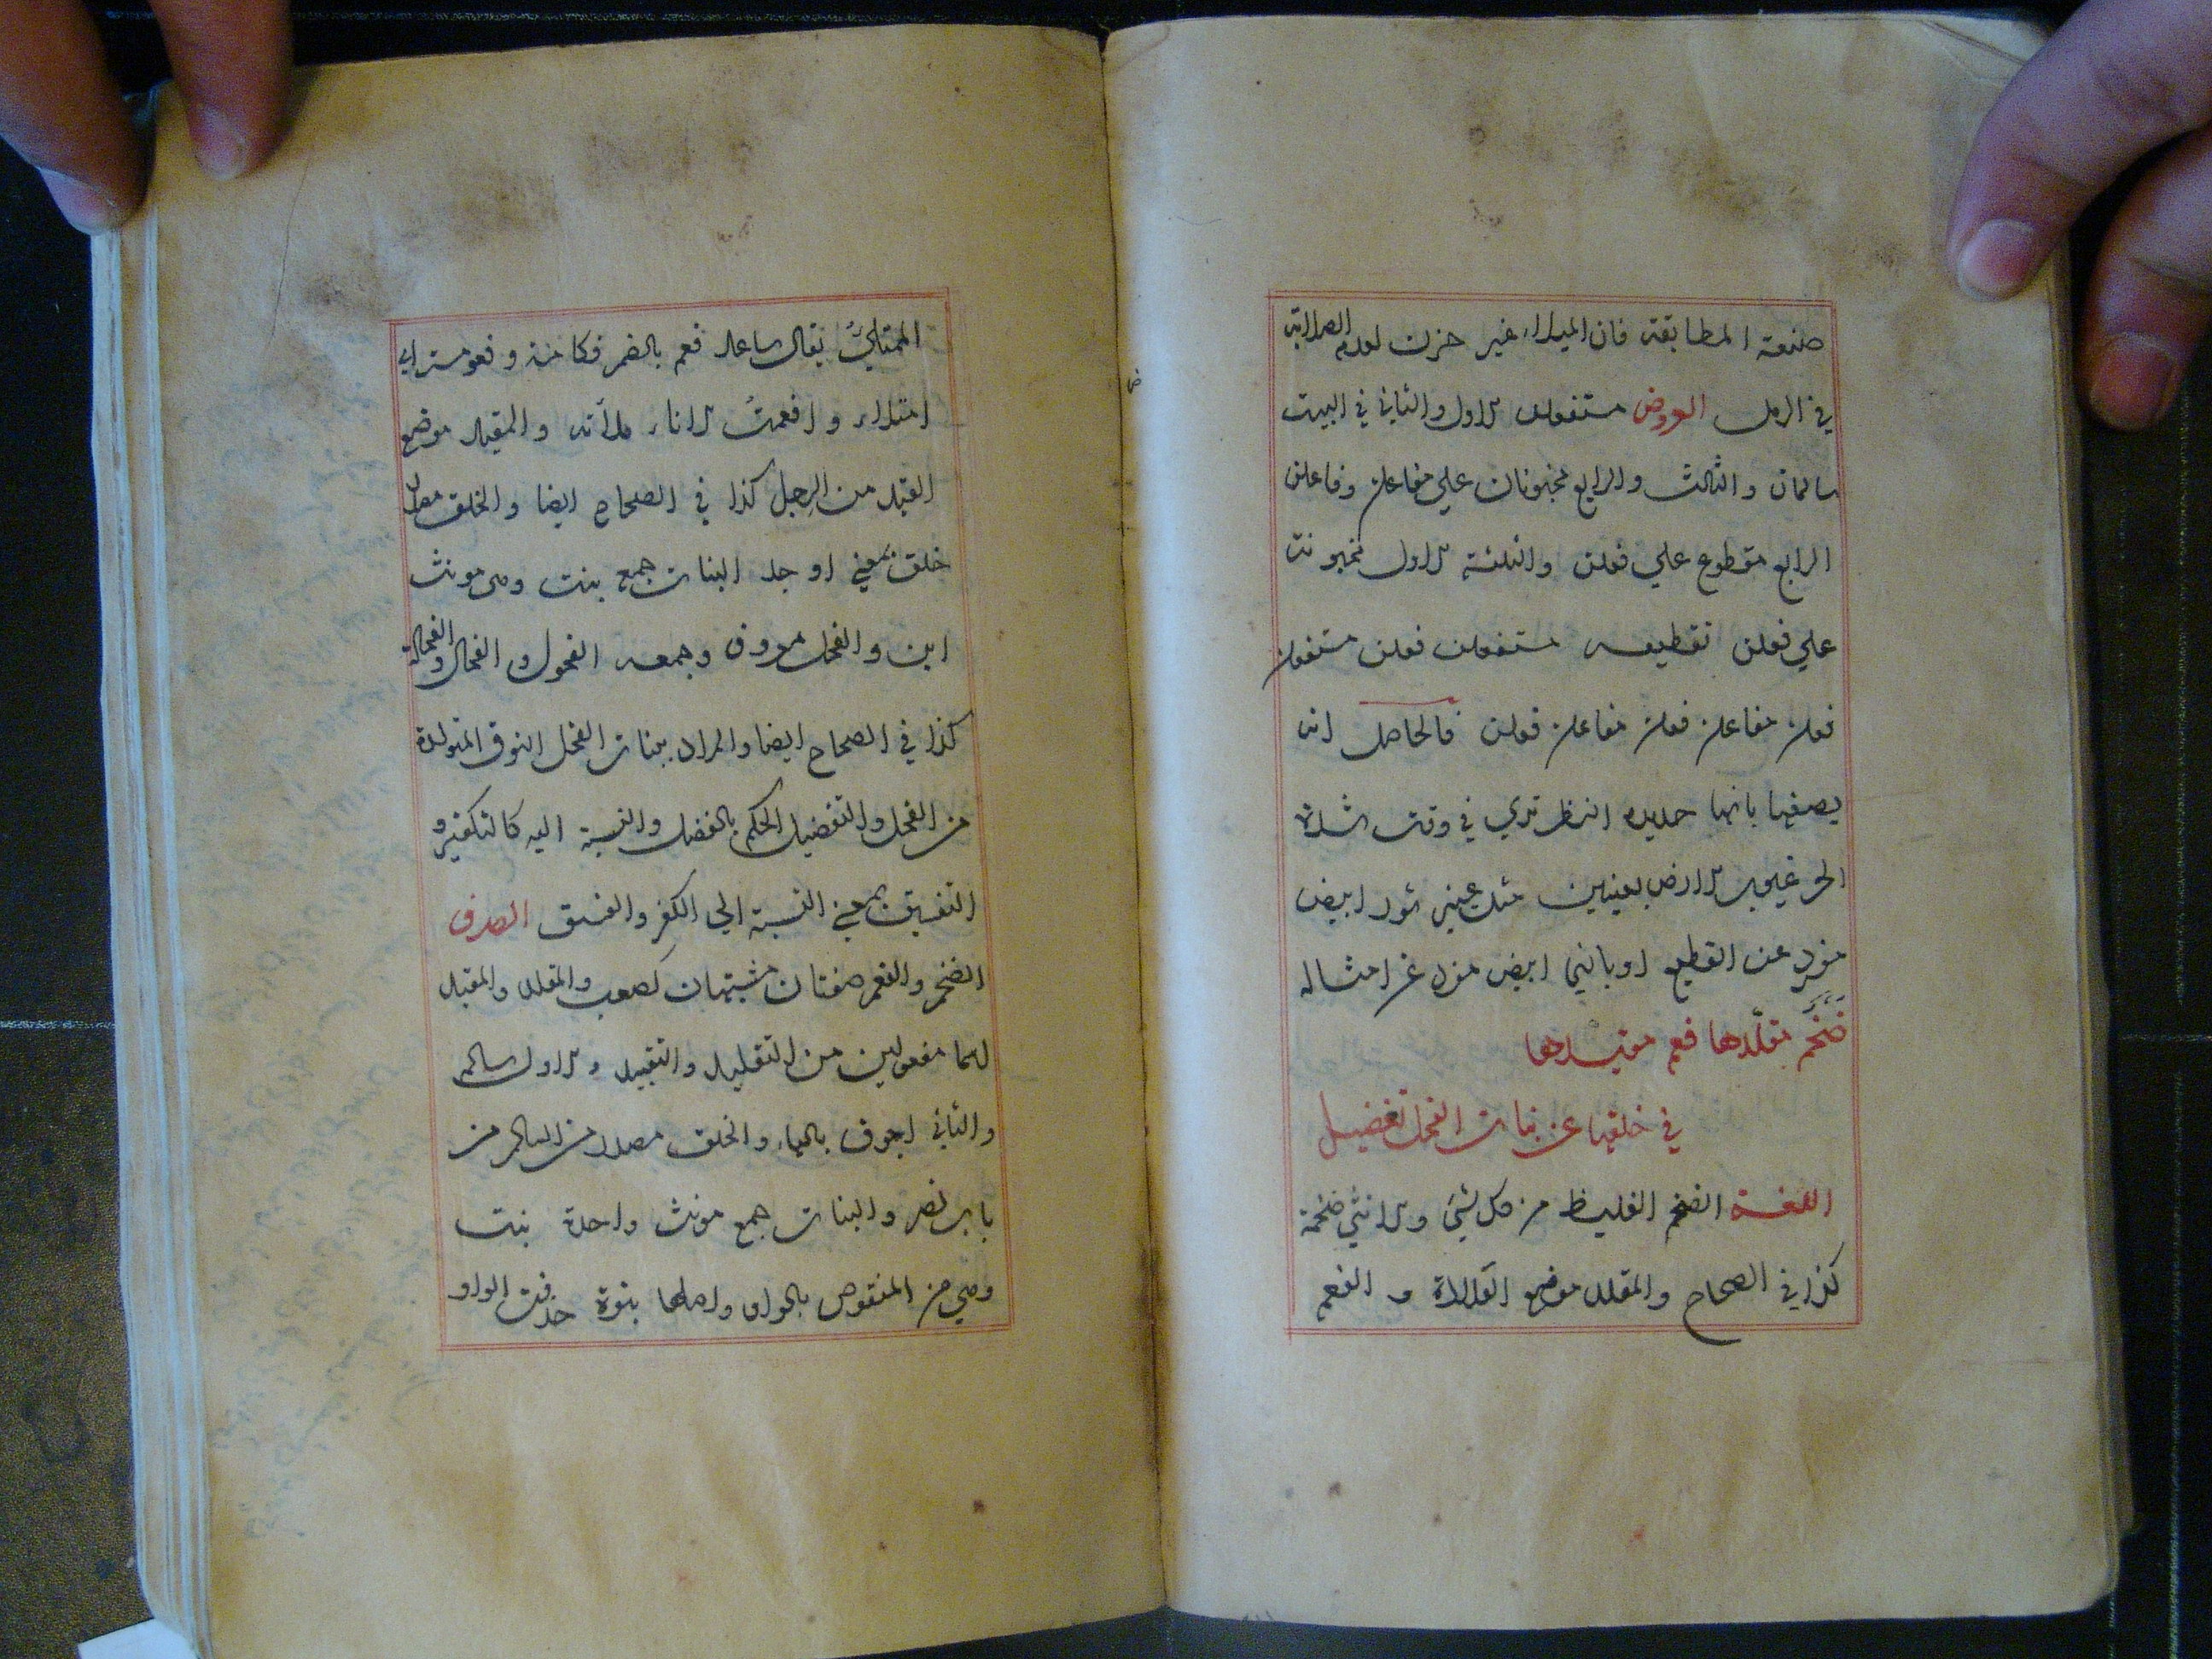 صنعة المطابقة فان الميلاء غير حزن لعدم الصلابة
في الرمل العروض مستفعلن الاول والثاني في البيت
سالمان والثالث والرابع مخبونان علي مفاعلن وفاعلن
الرابع مقطوع علي فعلن والثلثة الاول مخبونة
علي فعلن تقطيعه مستفعلن فعلن مستفعلن
فعلن مفاعلن فعلن مفاعلن فعلن فالحاصل انه
يصفها بانها حديده النظر تري في وقت شدة
الحر غيوب الارض بعينين مثل عيني ثور ابيض
مفرد عن القطيع او بانيما ابيض مفرد عن امثاله
ضخم مقلدها فعم مقيدها
في خلقها عن بنات الفحل تفضيل
اللغة الضخم الغليظ من كل شيء والانثي ضخمة
كذا في الصحاح والمقلد موضع القلادة و الفعم
الممتلئ يقال ساعد فعم بالضم فكامنة وفعومة اي
امتلاء وافعمت الاناء ملأته والمقيد موضع
القيد من الرجل كذا في الصحاح ايضا والخلق مصدر
خلق بمعني اوجد البنات جمع بنت وهي مونث
ابن والفحل معروف وجمعه الفحول والفحال والفحالة
كذا في الصحاح ايضا والمراد ببنات الفحل النوق المتولدة
من الفحل والتفضيل الحكم بالفضل والنسبة اليه كالتكفير و
التفسيق بمعني النسبة الي الكفر والفسق الصرف
الضخم والفعم صفتان مشبهتان كصعب والمقلد والمقيد
اسما مفعولين من التقليد والتقييد والاول سالم
والثاني اجوف بالياء والخلق مصدر من السالم من
باب نصر والبنات جمع مونث واحدة بنت
وهي من المنقوص بالواو واصلها بنوة حذفت الواو